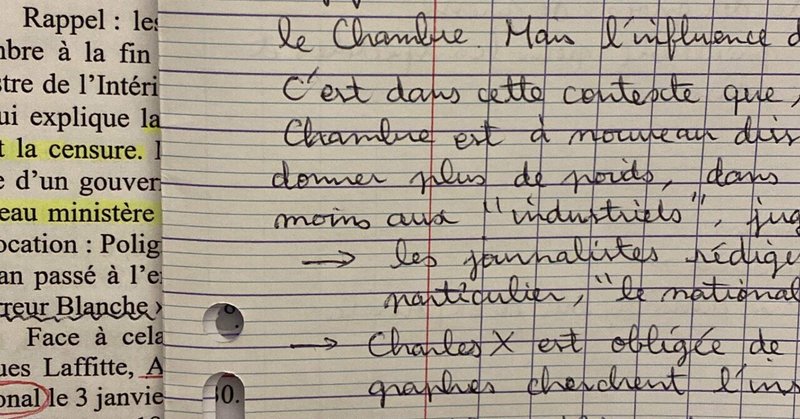 Rappel : les
mbre à la fin
stre de l'Intéri
ui explique la
t la censure.
e d'un gouver
eau ministère
ocation : Polig
an passé à l'e
rreur Blanche
Face à cela
ues Laffitte, A
onal le 3 janvie
le Chambre. Mais l'influence d
C'est dans cette contexte que,
Chambre est à nouveau diss
donner plus de poids, dans
moins aux "industriels", jug
→ les journalistes rédige
particulier, "le national
→ Charles X est obligée de
graphes cherchent l'ins
30.